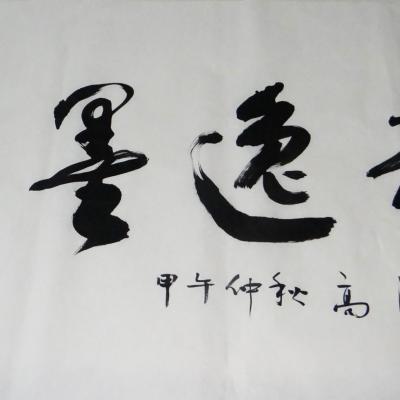 墨逸
甲午仲秋 高